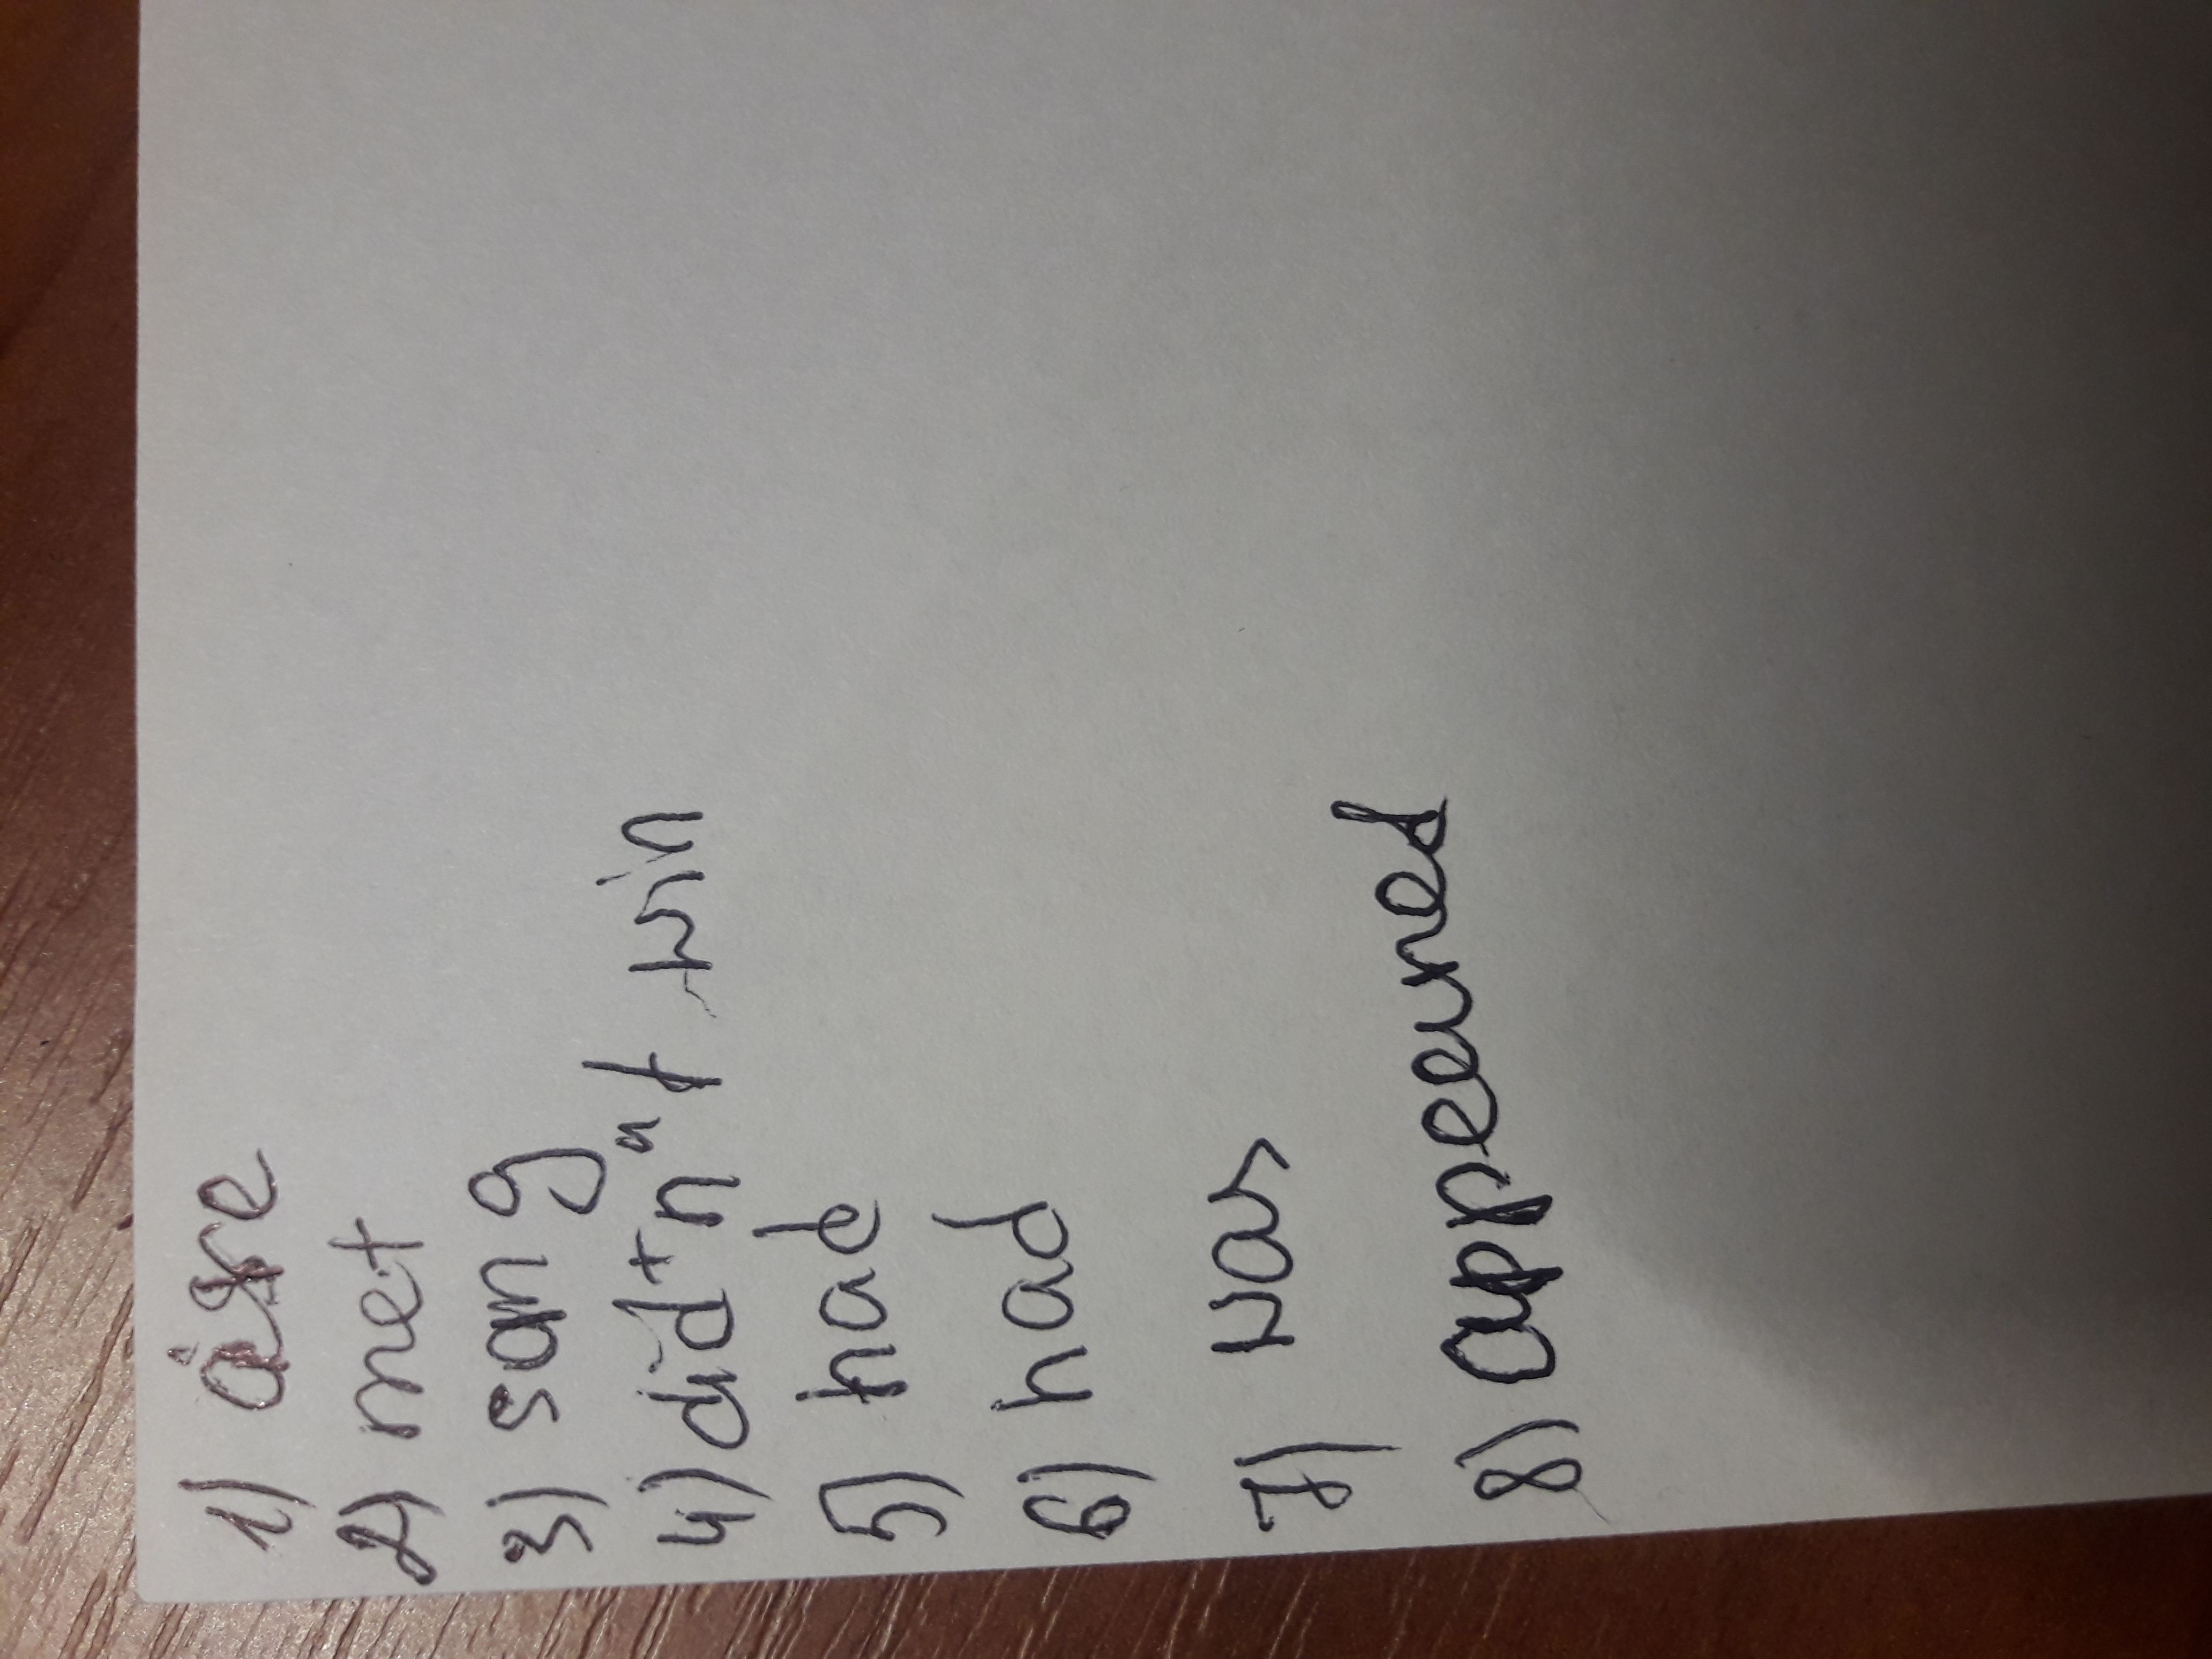 1) are
2) met
3) sang
4) didn't win
5) had
6) had
7) was
8) appeared